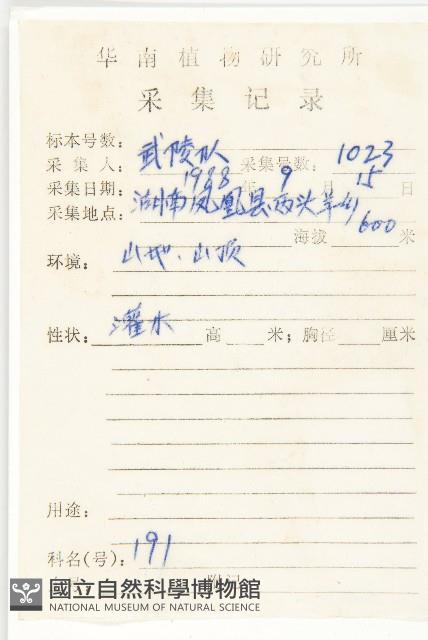 华南植物研究所
采集记录
标本号数：
采集人：武陵队 采集号数：1023
采集日期：1988年9月15日
采集地点：湖南凤凰县两头羊
海拔600米
环境：山地、山顶
性状：灌木 高 米；胸径 厘米
用途：
科名(号)：191
國立自然科學博物館
NATIONAL MUSEUM OF NATURAL SCIENCE